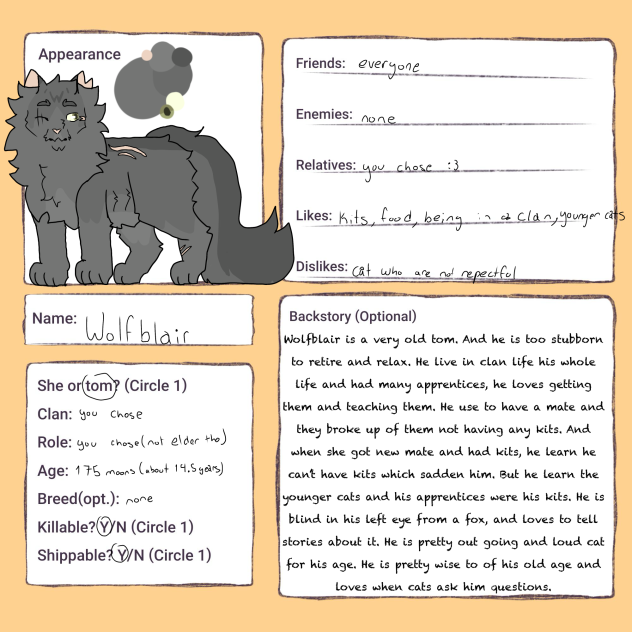 Appearance
Friends: everyone
Enemies: none
Relatives: you chose :3
Likes: Kits, food, being in a clan, younger cats
Dislikes: cat who are not repectful
Name: Wolfblair
She or tom? (Circle 1)
Clan: you chose
Role: you chose (not elder tho)
Age: 175 moons (about 14.5 years)
Breed(opt.): none
Killable? Y/N (Circle 1)
Shippable? Y/N (Circle 1)
Backstory (Optional)
Wolfblair is a very old tom. And he is too stubborn
to retire and relax. He live in clan life his whole
life and had many apprentices, he loves getting
them and teaching them. He use to have a mate and
they broke up of them not having any kits. And
when she got new mate and had kits, he learn he
can't have kits which sadden him. But he learn the
younger cats and his apprentices were his kits. He is
blind in his left eye from a fox, and loves to tell
stories about it. He is pretty out going and loud cat
for his age. He is pretty wise to of his old age and
loves when cats ask him questions.